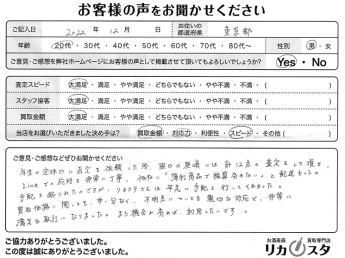 お客様の声をお聞かせください
ご記入日 2022年 12月 日 お住いの都道府県 東京都
年齢 20代・30代・40代・50代・60代・70代・80代～ 性別 男・女
ご意見・ご感想を弊社ホームページにお客様の声として掲載させて頂いてもよろしいでしょうか? Yes・No
査定スピード 大満足・満足・やや満足・どちらでもない・やや不満・不満・( )
スタッフ接客 大満足・満足・やや満足・どちらでもない・やや不満・不満・( )
買取金額 大満足・満足・やや満足・どちらでもない・やや不満・不満・( )
当店をお選びいただきました決め手は? 買取金額・対応力・利便性・スピード・その他( )
ご意見・ご感想などぜひお聞かせください
年末の定休日に査定を依頼した所、翌日の
LINEでの応対も非常に丁寧、他社に
手配を断られたのですが、リカスタさんは早急に手配を行って
買取価格に関しても、申し分なく、不明点についても親切な対応で、非常に
満足な取引になりました。また機会が有れば、利用したいです。
ご協力ありがとうございました。
この度は誠にありがとうございました。
お酒高価買取専門店
リカスタ